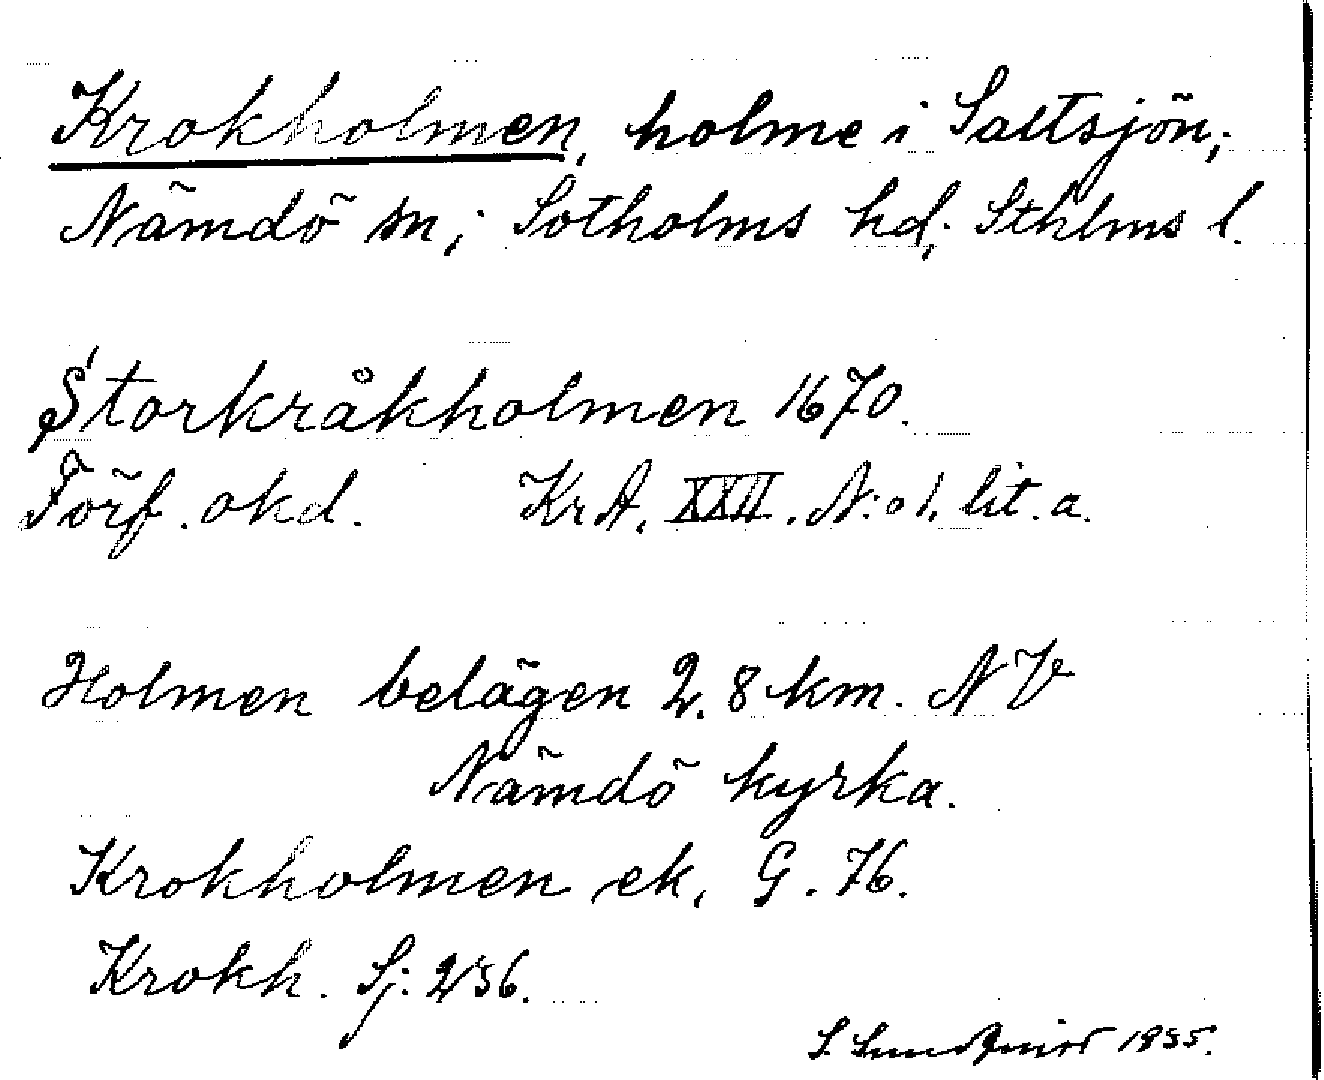 Krokholmen, holme i Saltsjön;
Nämdö sn; Sotholms hd; Sthlms l.
Storkråkholmen 1670.
Förf. okd. KrA. XXII. N:o 1. lit. a.
Holmen belägen 2.8 km. NV
Nämdö kyrka.
Krokholmen ek. G. 76.
Krokh. Sj: 236.
S. Sundqvist 1935.